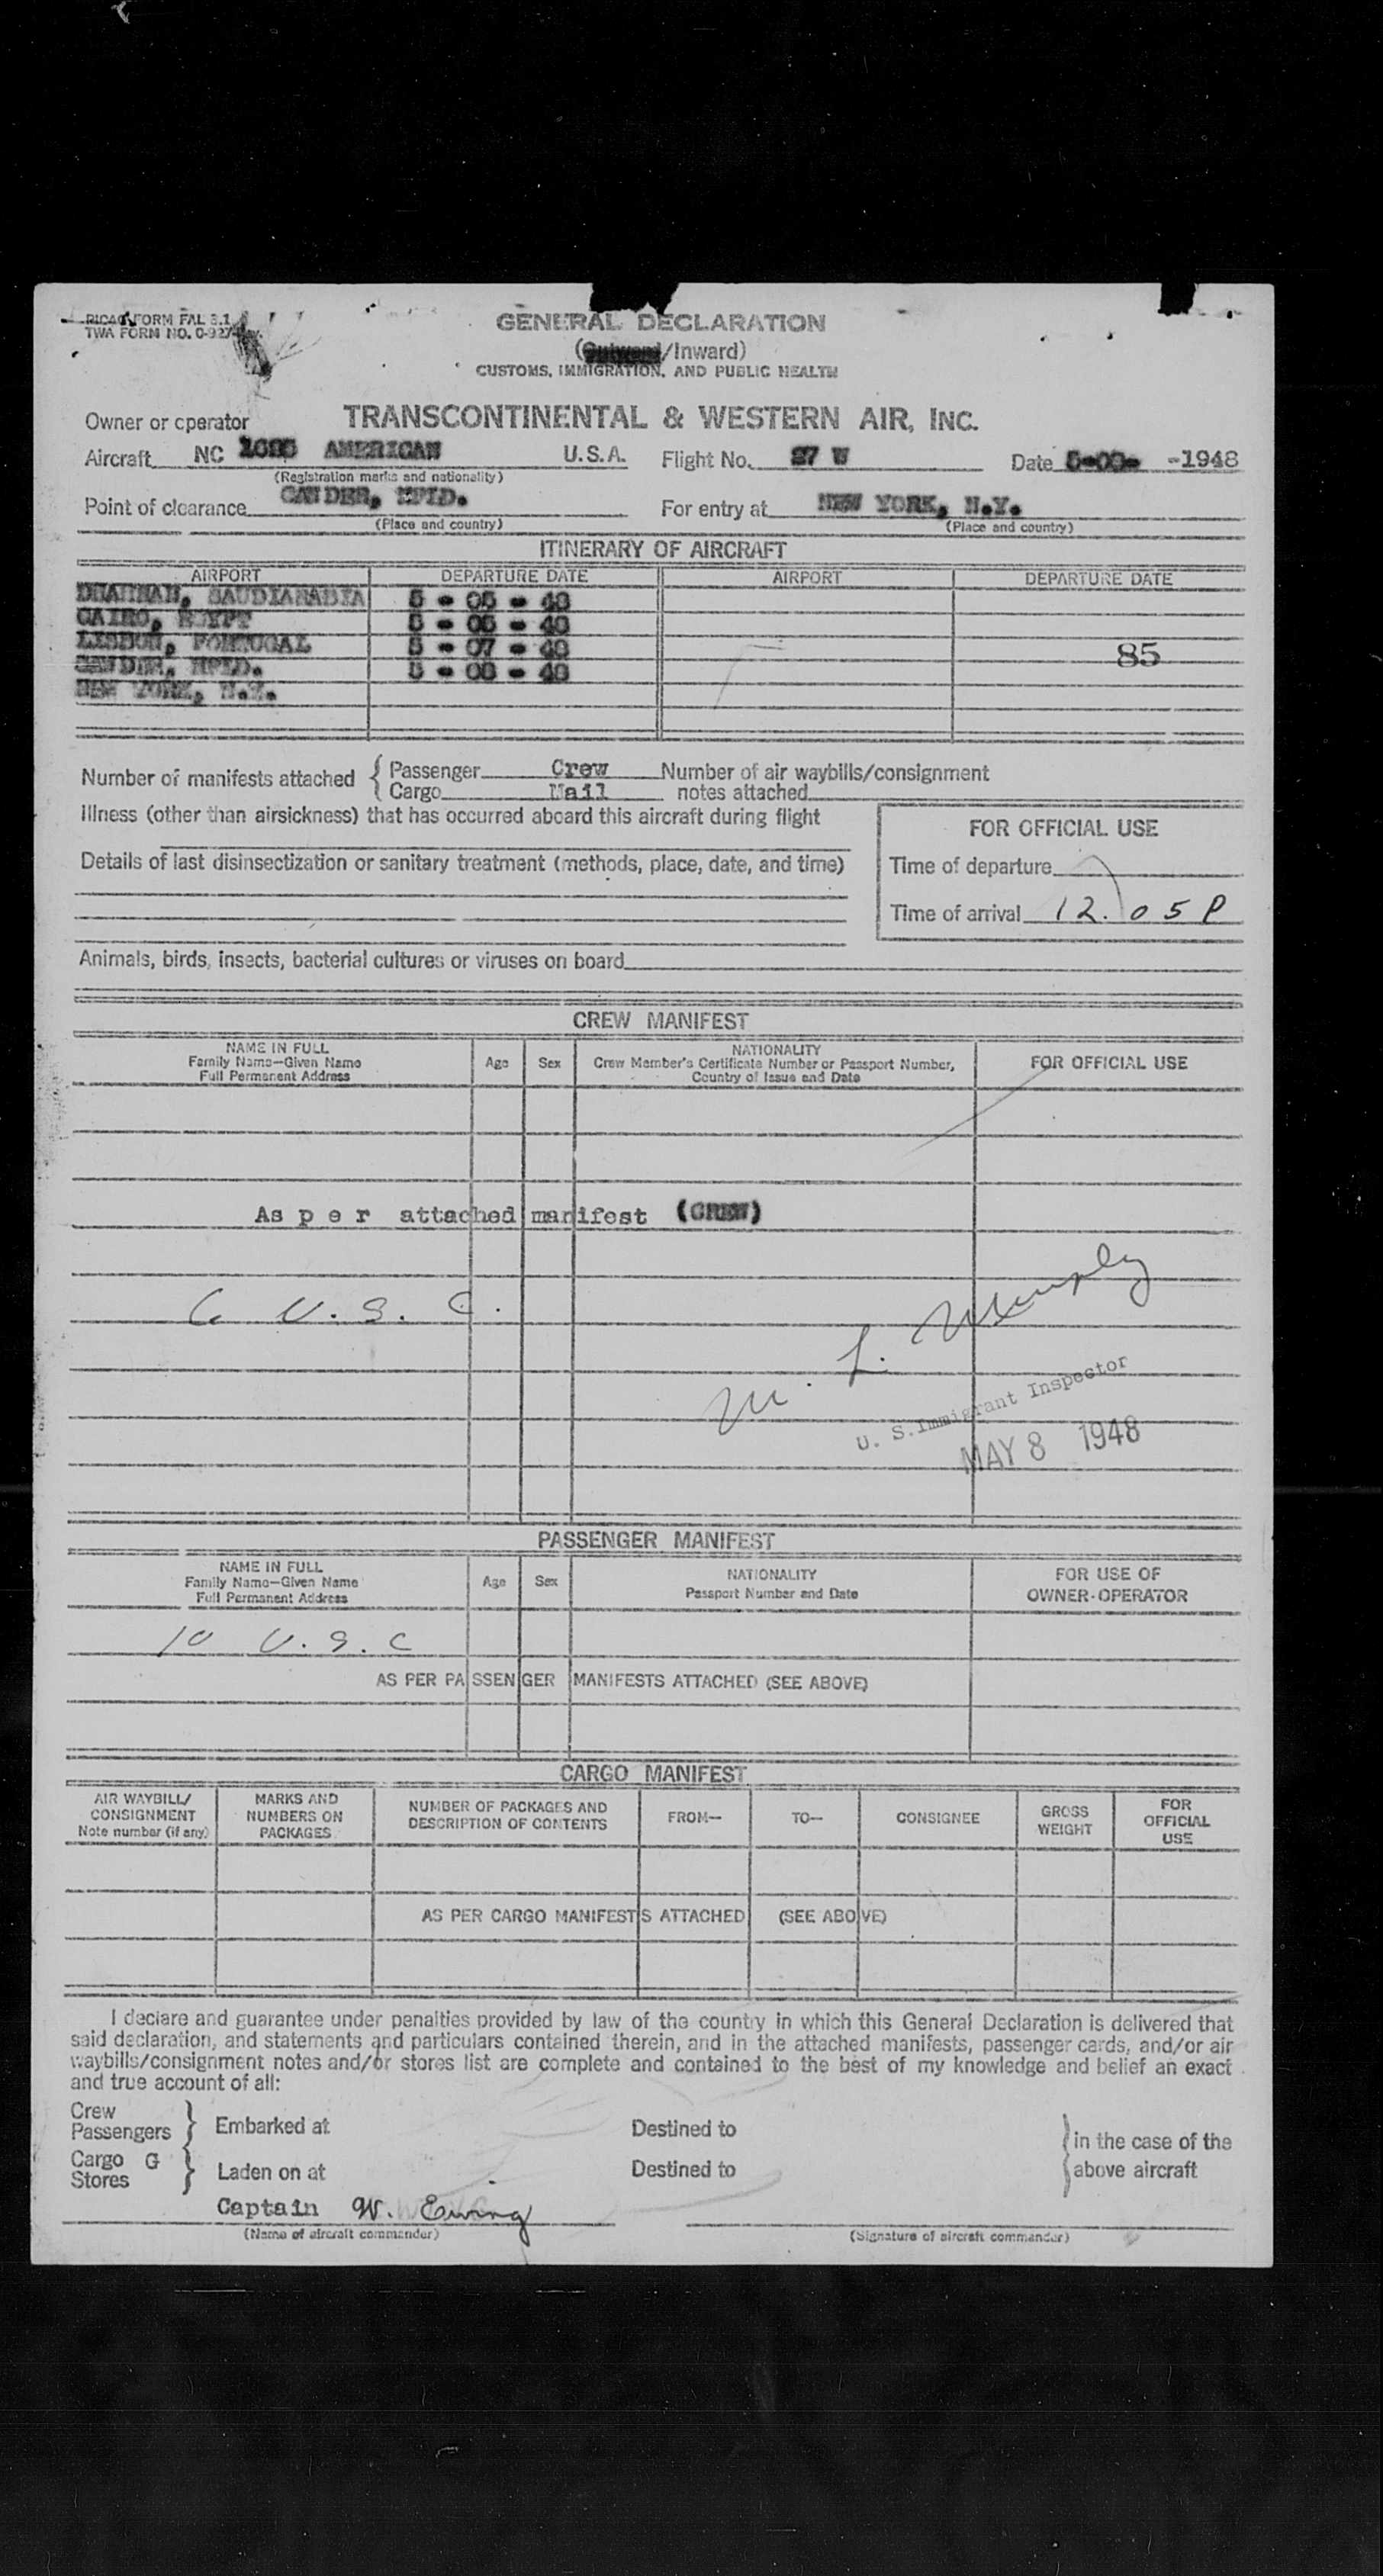 PICAO FORM FAL 3.1
TWA FORM NO. C-927
GENERAL DECLARATION
(Outward/Inward)
CUSTOMS, IMMIGRATION, AND PUBLIC HEALTH
Owner or operator TRANSCONTINENTAL & WESTERN AIR, INC.
Aircraft NC AMERICAN U.S.A. Flight No. 27 W Date -1948
(Registration marks and nationality)
Point of clearance GANDER, NFLD. For entry at NEW YORK, N.Y.
(Place and country) (Place and country)
ITINERARY OF AIRCRAFT
AIRPORT DEPARTURE DATE AIRPORT DEPARTURE DATE
DHAHRAN, SAUDIARABIA 5 - 05 - 48
CAIRO, EGYPT 5 - 06 - 48
LISBON, PORTUGAL 5 - 07 - 48 85
GANDER, NFLD. 5 - 08 - 48
NEW YORK, N.Y.
Number of manifests attached { Passenger Crew Number of air waybills/consignment
Cargo Mail notes attached
Illness (other than airsickness) that has occurred aboard this aircraft during flight
FOR OFFICIAL USE
Details of last disinsectization or sanitary treatment (methods, place, date, and time)
Time of departure
Time of arrival 12.05 P
Animals, birds, insects, bacterial cultures or viruses on board
CREW MANIFEST
NAME IN FULL
Family Name—Given Name
Full Permanent Address
Age Sex
NATIONALITY
Crew Member's Certificate Number or Passport Number,
Country of Issue and Date
FOR OFFICIAL USE
As p e r attached manifest (CREW)
6 U. S. C.
M. L. Murphy
U. S. Immigrant Inspector
MAY 8 1948
PASSENGER MANIFEST
NAME IN FULL
Family Name—Given Name
Full Permanent Address
Age Sex
NATIONALITY
Passport Number and Date
FOR USE OF
OWNER-OPERATOR
10 U. S. C
AS PER PASSENGER MANIFESTS ATTACHED (SEE ABOVE)
CARGO MANIFEST
AIR WAYBILL/
CONSIGNMENT
Note number (if any)
MARKS AND
NUMBERS ON
PACKAGES
NUMBER OF PACKAGES AND
DESCRIPTION OF CONTENTS
FROM— TO— CONSIGNEE
GROSS
WEIGHT
FOR
OFFICIAL
USE
AS PER CARGO MANIFESTS ATTACHED (SEE ABOVE)
I declare and guarantee under penalties provided by law of the country in which this General Declaration is delivered that
said declaration, and statements and particulars contained therein, and in the attached manifests, passenger cards, and/or air
waybills/consignment notes and/or stores list are complete and contained to the best of my knowledge and belief an exact
and true account of all:
Crew
Passengers } Embarked at Destined to } in the case of the
Cargo G
Stores } Laden on at Destined to above aircraft
Captain W. Ewing
(Name of aircraft commander) (Signature of aircraft commander)